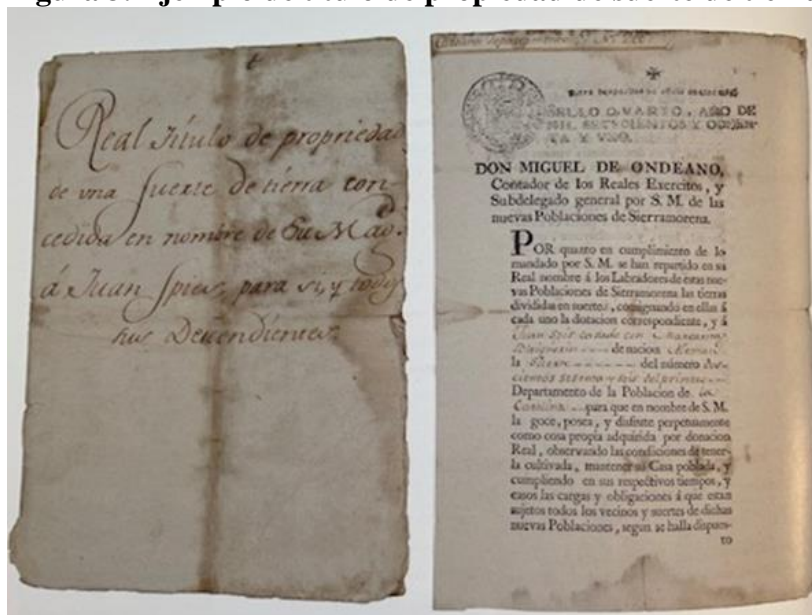 Real Título de propriedad
de vna fuerte de tierra con-
cedida en nombre de Su Mag.
á Juan Spies, para sí, y todos
sus Decendientes.
SELLO QVARTO, AÑO DE
MIL SETECIENTOS Y OCHEN-
TA Y VNO.
DON MIGUEL DE ONDEANO,
Contador de los Reales Exercitos, y
Subdelegado general por S. M. de las
nuevas Poblaciones de Sierramorena.
POR quanto en cumplimiento de lo
mandado por S. M. se han repartido en su
Real nombre á los Labradores de estas nue-
vas Poblaciones de Sierramorena las tierras
divididas en suertes, consignando en ellas á
cada uno la dotacion correspondiente, y á
Juan Spis casado con
de nacion
la Suerte del número
Departamento de la Poblacion de la
Carolina para que en nombre de S. M.
la goce, posea, y disfrute perpetuamente
como cosa propia adquirida por donacion
Real, observando las condiciones de tener-
la cultivada, mantener su Casa poblada, y
cumpliendo en sus respectivos tiempos, y
casos las cargas y obligaciones á que estan
sujetos todos los vecinos y suertes de dichas
nuevas Poblaciones, segun se halla dispues-
to